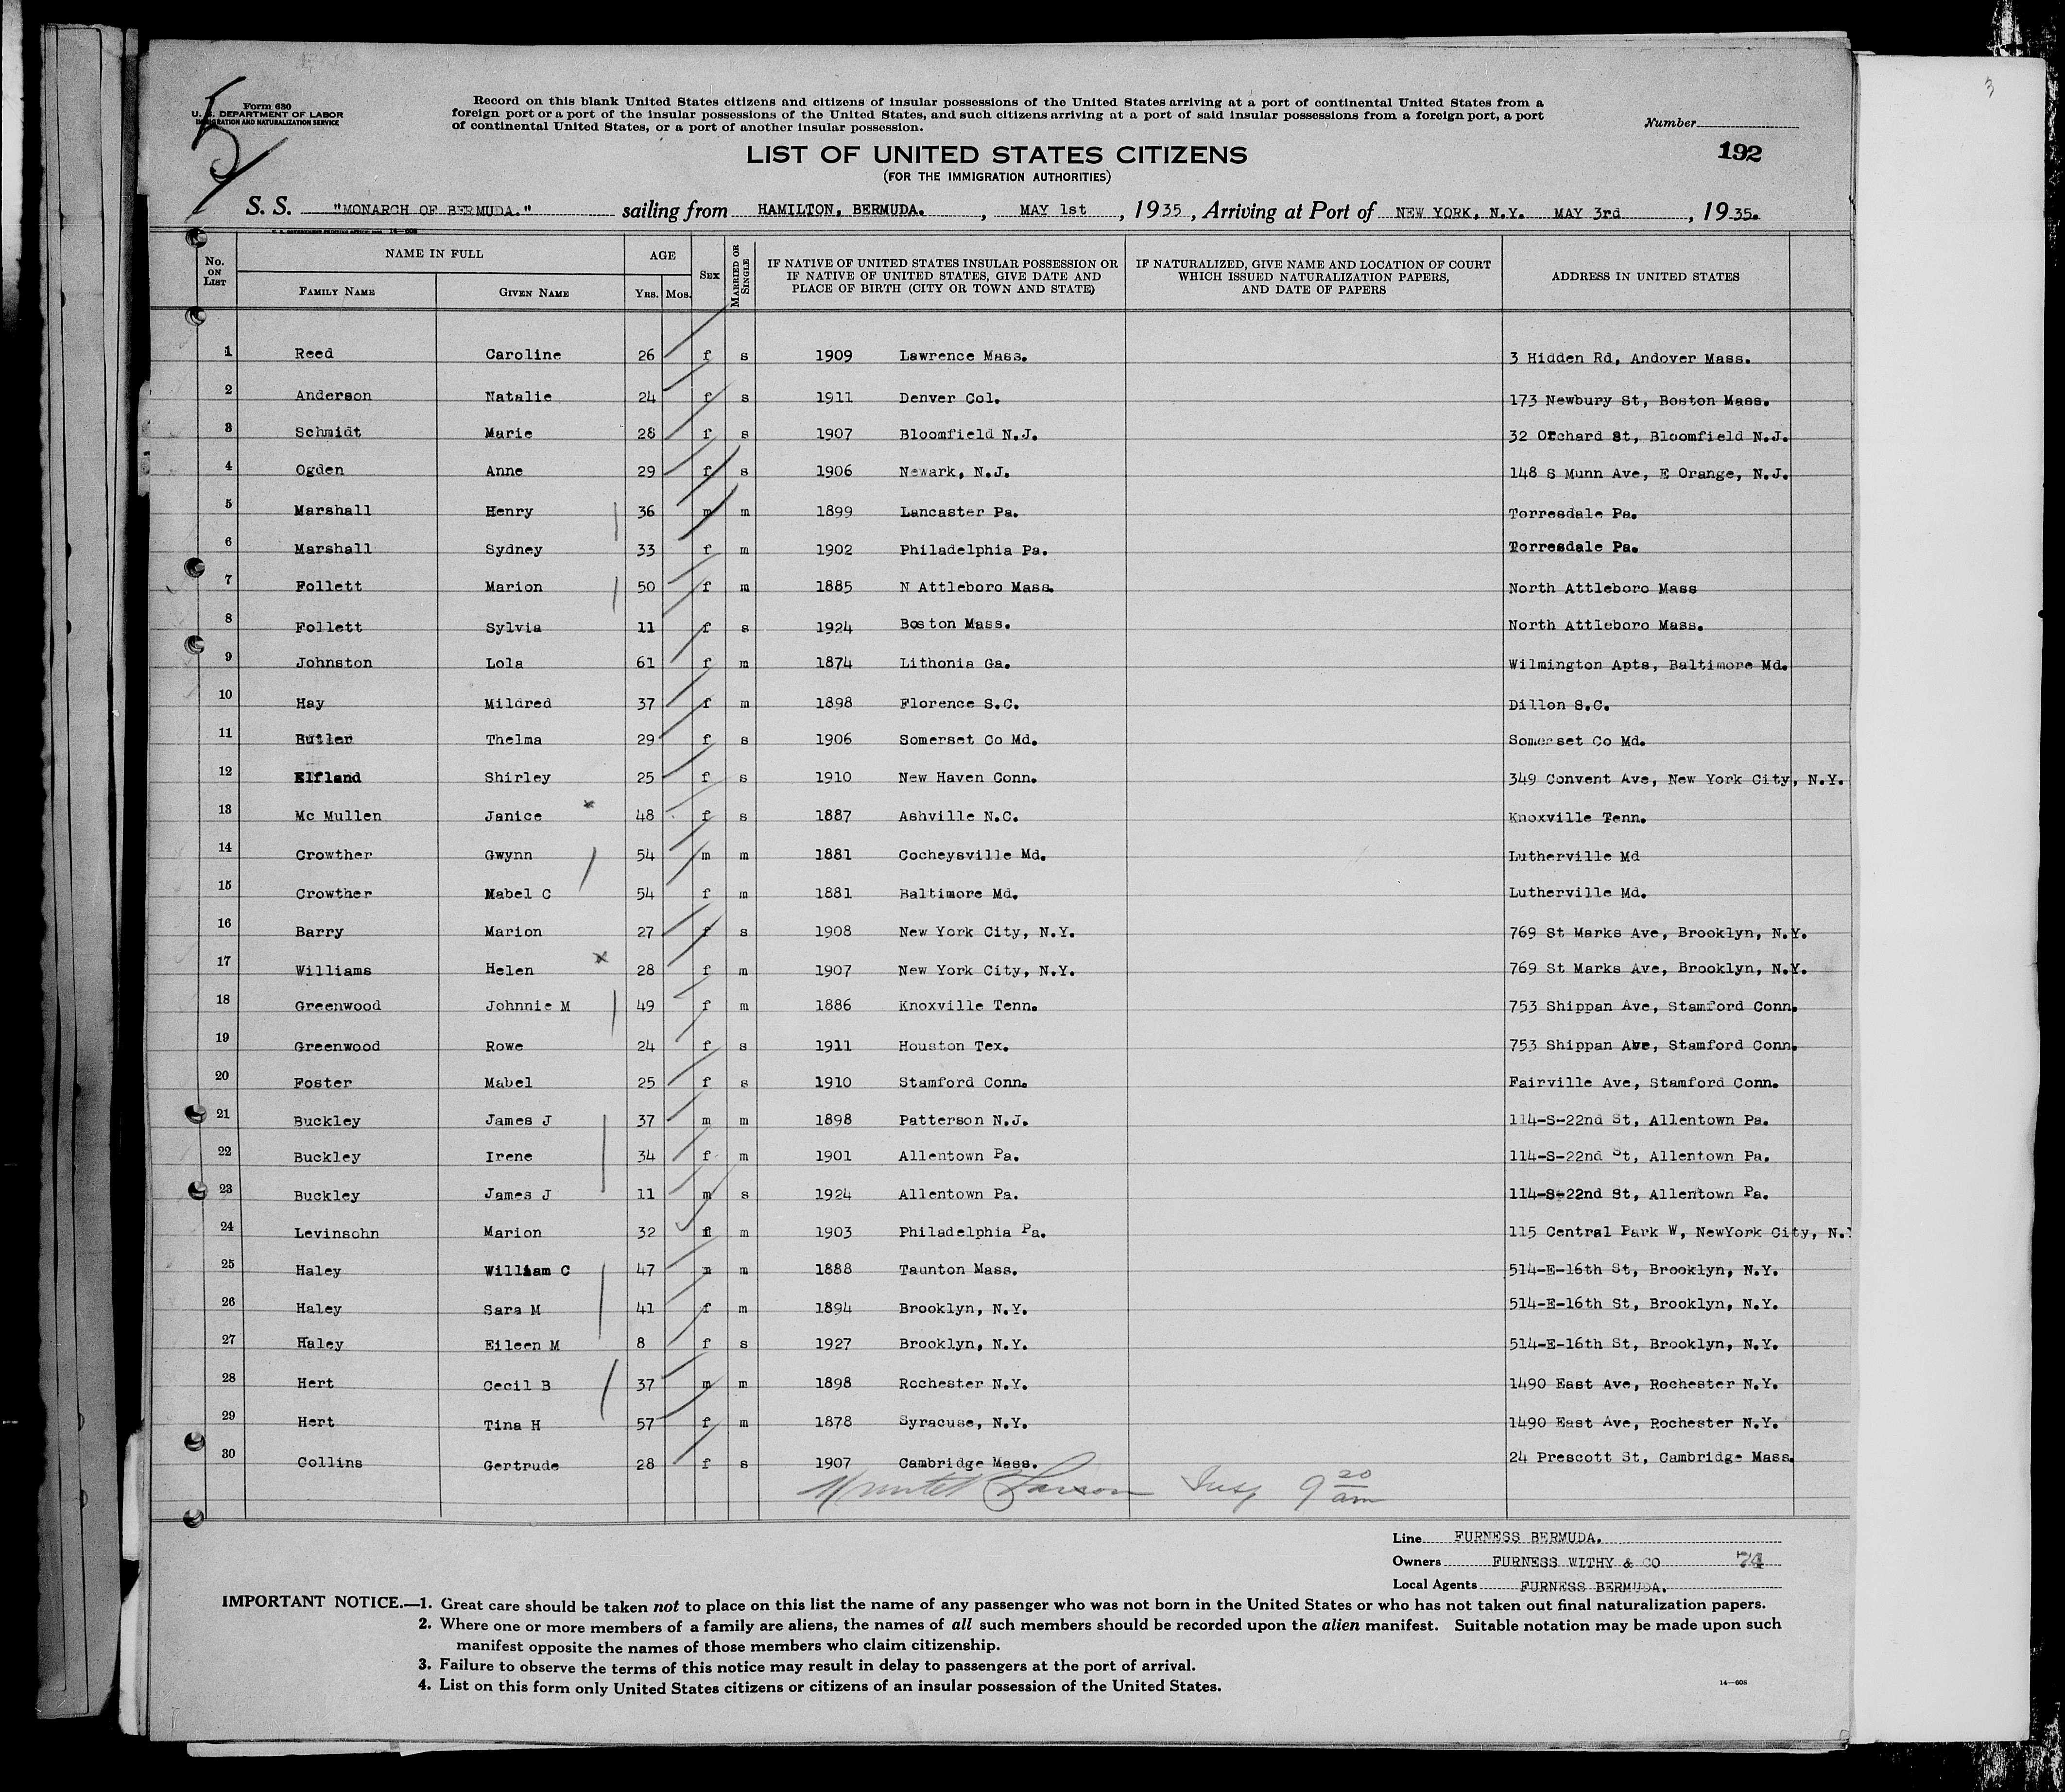 Form 630
U. S. DEPARTMENT OF LABOR
IMMIGRATION AND NATURALIZATION SERVICE
5
Record on this blank United States citizens and citizens of insular possessions of the United States arriving at a port of continental United States from a
foreign port or a port of the insular possessions of the United States, and such citizens arriving at a port of said insular possessions from a foreign port, a port
of continental United States, or a port of another insular possession.
Number
192
LIST OF UNITED STATES CITIZENS
(FOR THE IMMIGRATION AUTHORITIES)
S. S. "MONARCH OF BERMUDA." sailing from HAMILTON, BERMUDA. , MAY 1st , 1935 , Arriving at Port of NEW YORK, N.Y. MAY 3rd , 1935.
No. ON LIST NAME IN FULL FAMILY NAME GIVEN NAME AGE YRS. MOS. SEX MARRIED OR SINGLE IF NATIVE OF UNITED STATES INSULAR POSSESSION OR IF NATIVE OF UNITED STATES, GIVE DATE AND PLACE OF BIRTH (CITY OR TOWN AND STATE) IF NATURALIZED, GIVE NAME AND LOCATION OF COURT WHICH ISSUED NATURALIZATION PAPERS, AND DATE OF PAPERS ADDRESS IN UNITED STATES
1 Reed Caroline 26 f s 1909 Lawrence Mass. 3 Hidden Rd, Andover Mass.
2 Anderson Natalie 24 f s 1911 Denver Col. 173 Newbury St, Boston Mass.
3 Schmidt Marie 28 f s 1907 Bloomfield N.J. 32 Orchard St, Bloomfield N.J.
4 Ogden Anne 29 f s 1906 Newark, N.J. 148 S Munn Ave, E Orange, N.J.
5 Marshall Henry 36 m m 1899 Lancaster Pa. Torresdale Pa.
6 Marshall Sydney 33 f m 1902 Philadelphia Pa. Torresdale Pa.
7 Follett Marion 50 f m 1885 N Attleboro Mass. North Attleboro Mass
8 Follett Sylvia 11 f s 1924 Boston Mass. North Attleboro Mass.
9 Johnston Lola 61 f m 1874 Lithonia Ga. Wilmington Apts, Baltimore Md.
10 Hay Mildred 37 f m 1898 Florence S.C. Dillon S.C.
11 Butler Thelma 29 f s 1906 Somerset Co Md. Somerset Co Md.
12 Elfland Shirley 25 f s 1910 New Haven Conn. 349 Convent Ave, New York City, N.Y.
13 Mc Mullen Janice x 48 f s 1887 Ashville N.C. Knoxville Tenn.
14 Crowther Gwynn 54 m m 1881 Cocheysville Md. Lutherville Md
15 Crowther Mabel C 54 f m 1881 Baltimore Md. Lutherville Md.
16 Barry Marion 27 f s 1908 New York City, N.Y. 769 St Marks Ave, Brooklyn, N.Y.
17 Williams Helen x 28 f m 1907 New York City, N.Y. 769 St Marks Ave, Brooklyn, N.Y.
18 Greenwood Johnnie M 49 f m 1886 Knoxville Tenn. 753 Shippan Ave, Stamford Conn.
19 Greenwood Rowe 24 f s 1911 Houston Tex. 753 Shippan Ave, Stamford Conn.
20 Foster Mabel 25 f s 1910 Stamford Conn. Fairville Ave, Stamford Conn.
21 Buckley James J 37 m m 1898 Patterson N.J. 114-S-22nd St, Allentown Pa.
22 Buckley Irene 34 f m 1901 Allentown Pa. 114-S-22nd St, Allentown Pa.
23 Buckley James J 11 m s 1924 Allentown Pa. 114-S-22nd St, Allentown Pa.
24 Levinsohn Marion 32 f m 1903 Philadelphia Pa. 115 Central Park W, NewYork City, N.
25 Haley William C 47 m m 1888 Taunton Mass. 514-E-16th St, Brooklyn, N.Y.
26 Haley Sara M 41 f m 1894 Brooklyn, N.Y. 514-E-16th St, Brooklyn, N.Y.
27 Haley Eileen M 8 f s 1927 Brooklyn, N.Y. 514-E-16th St, Brooklyn, N.Y.
28 Hert Cecil B 37 m m 1898 Rochester N.Y. 1490 East Ave, Rochester N.Y.
29 Hert Tina H 57 f m 1878 Syracuse, N.Y. 1490 East Ave, Rochester N.Y.
30 Collins Gertrude 28 f s 1907 Cambridge Mass. 24 Prescott St, Cambridge Mass.
Insp 9 20 am
Line FURNESS BERMUDA.
Owners FURNESS WITHY & CO 74
Local Agents FURNESS BERMUDA.
IMPORTANT NOTICE.—1. Great care should be taken not to place on this list the name of any passenger who was not born in the United States or who has not taken out final naturalization papers.
2. Where one or more members of a family are aliens, the names of all such members should be recorded upon the alien manifest. Suitable notation may be made upon such
manifest opposite the names of those members who claim citizenship.
3. Failure to observe the terms of this notice may result in delay to passengers at the port of arrival.
4. List on this form only United States citizens or citizens of an insular possession of the United States.
14—608